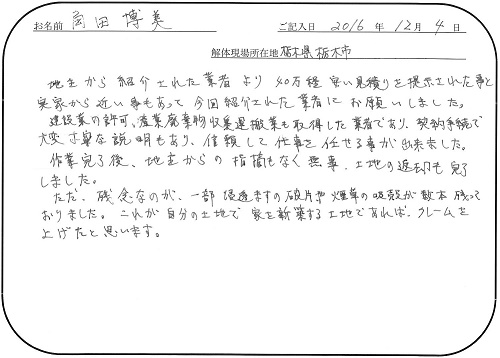 お名前 岡田 博美 ご記入日 2016 年 12 月 4 日
解体現場所在地 栃木県栃木市
地主から紹介された業者より40万程安い見積りを提示された事と
実家から近い事もあって今回紹介された業者にお願いしました。
建設業の許可、産業廃棄物収集運搬業も取得した業者であり、契約手続で
大変丁寧な説明もあり、信頼して仕事を任せる事が出来ました。
作業完了後、地主からの指摘もなく無事、土地の返却も完了
しました。
ただ、残念なのが、一部浸透ますの破片や煙草の吸殻が数本残って
おりました。これが自分の土地で家を新築する土地であれば、クレームを
上げたと思います。